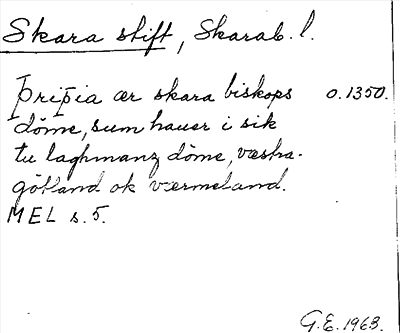 Skara stift, Skarab. l.
þriþia ær skara biskops o. 1350.
döme, sum hauer i sik
tu laghmanz döme, væstra-
götland ok værmeland.
MEL s. 5.
G.E. 1963.